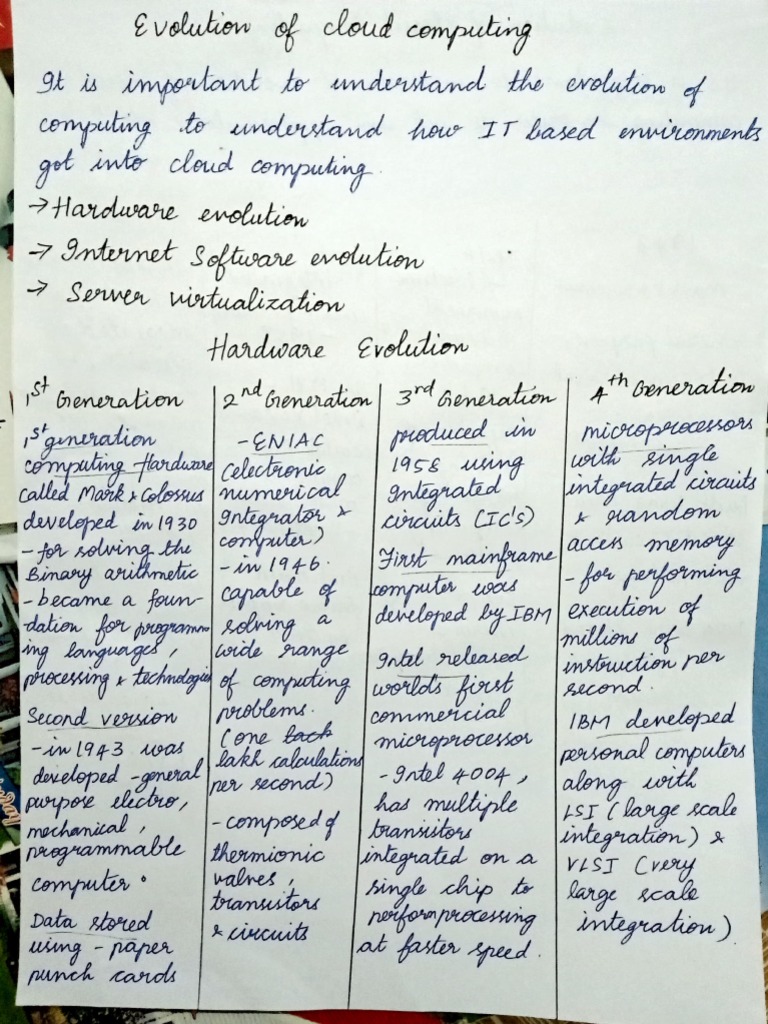 Evolution of cloud computing
It is important to understand the evolution of
computing to understand how IT based environments
got into cloud computing.
→ Hardware evolution
→ Internet Software evolution
→ Server virtualization
Hardware Evolution
1st Generation
1st generation
computing Hardware
called Mark & Colossus
developed in 1930
- for solving the
Binary arithmetic
- became a foun-
dation for programm
ing languages,
processing & technologies
Second version
- in 1943 was
developed - general
purpose electro,
mechanical,
programmable
computer.
Data stored
using - paper
punch cards
2nd Generation
- ENIAC
(electronic
numerical
Integrator &
computer)
- in 1946.
capable of
solving a
wide range
of computing
problems.
(one
lakh calculations
per second)
- composed of
thermionic
valves,
transistors
& circuits
3rd Generation
produced in
1958 using
Integrated
circuits (IC's)
First mainframe
computer was
developed by IBM
Intel released
world's first
commercial
microprocessor
- Intel 4004,
has multiple
transistors
integrated on a
single chip to
perform processing
at faster speed.
4th Generation
microprocessors
with single
integrated circuits
& random
access memory
- for performing
execution of
millions of
instruction per
second.
IBM developed
personal computers
along with
LSI (large scale
integration) &
VLSI (very
large scale
integration)